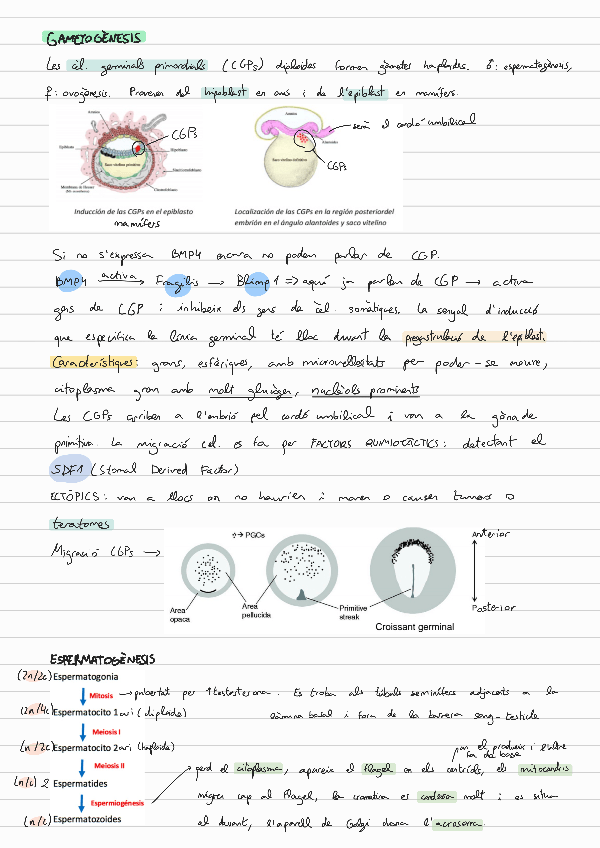 GAMETOGÈNESIS
Les cèl. germinals primordials (CGPs) diploides formen gàmetes haploides. ♂: espermatogènesi,
♀: ovogènesi. Provenen del hipoblast en aus i de l'epiblast en mamífers.
CGPs
Amnios
Epiblasto
Hipoblasto
Saco vitelino primitivo
Sincitiotrofoblasto
Membrana de Heuser
Citotrofoblasto
Inducción de las CGPs en el epiblasto
mamífers
Amnios
serà el cordó umbilical
Alantoides
Saco vitelino definitivo
CGPs
Localización de las CGPs en la región posteriordel
embrión en el ángulo alantoides y saco vitelino
Si no s'expressa BMP4 encara no podem parlar de CGP.
BMP4 activa → Fragilis → Blimp1 => aquí ja parlem de CGP → activa
gens de CGP i inhibeix els gens de cèl. somàtiques. La senyal d'inducció
que especifica la línia germinal té lloc durant la pregastrulació de l'epiblast.
Característiques: grans, esfèriques, amb microvellositats per poder-se moure,
citoplasma gran amb molt glucògen, nuclèols prominents
Les CGPs arriben a l'embrió pel cordó umbilical i van a la gònada
primitiva. La migració cel. es fa per FACTORS QUIMIOTÀCTICS: detectant el
SDF1 (Stromal Derived Factor)
ECTÒPICS: van a llocs on no haurien i moren o causen tumors o
teratomes
Migració CGPs →
→ PGCs
Area
opaca
Area
pellucida
Primitive
streak
Croissant germinal
Anterior
Posterior
ESPERMATOGÈNESIS
(2n/2c) Espermatogonia
Mitosis → pubertat per ↑testosterona. Es troba als túbuls seminífers adjacents a la
(2n/4c) Espermatocito 1ari (diploide) làmina basal i fora de la barrera sang-testicle
Meiosis I
(n/2c) Espermatocito 2ari (haploide)
Meiosis II
(n/c) 2 Espermatides
perd el citoplasma, apareix el flagel on els centríols, els mitocondris
Espermiogénesis
migra cap al flagel, la cromatina es condensa molt i es situa
(n/c) Espermatozoides
al davant, l'aparell de Golgi dona l'acrosoma.